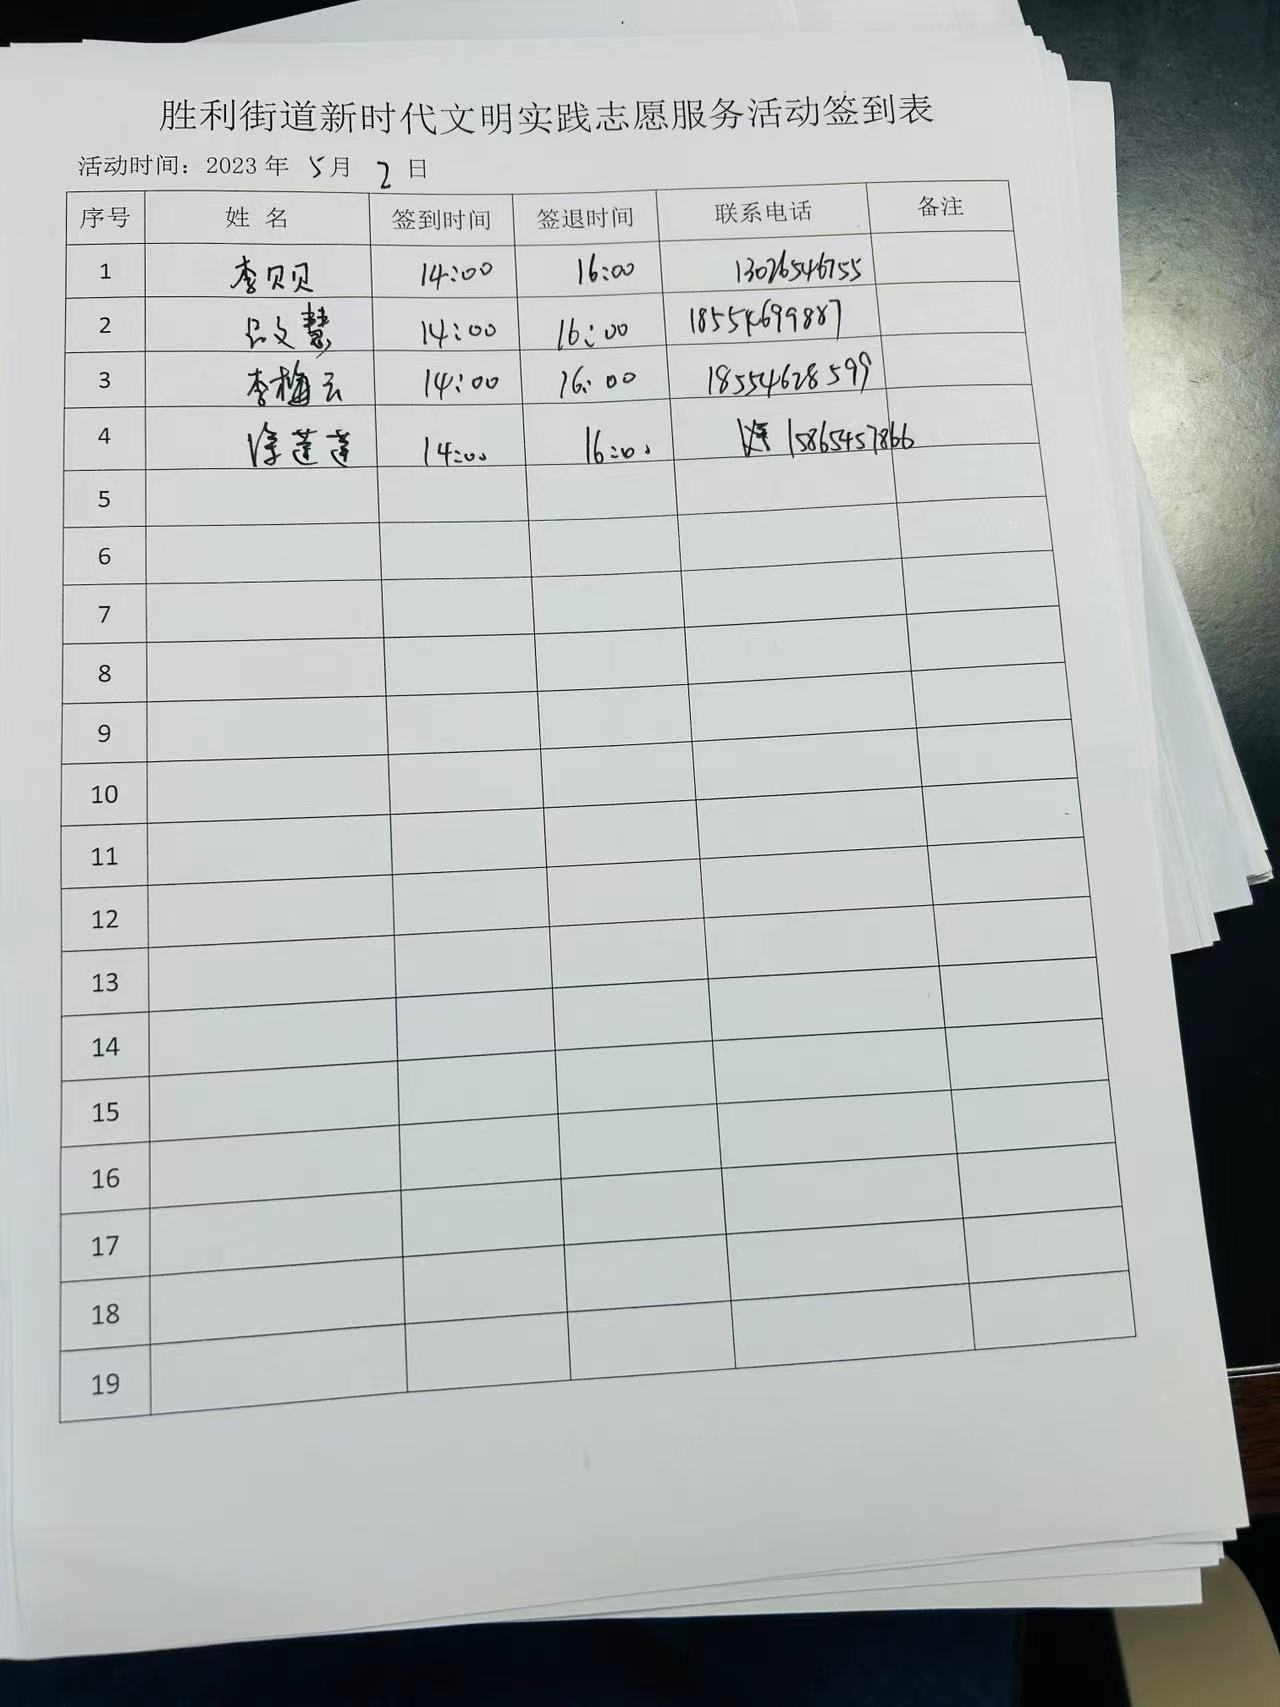 胜利街道新时代文明实践志愿服务活动签到表
活动时间：2023 年 5 月 2 日
序号 姓 名 签到时间 签退时间 联系电话 备注
1 李贝贝 14:00 16:00 13026546755
2 吕文慧 14:00 16:00 18554699887
3 李梅云 14:00 16:00 18554628599
4 徐莲莲 14:00 16:00 15865457866
5
6
7
8
9
10
11
12
13
14
15
16
17
18
19